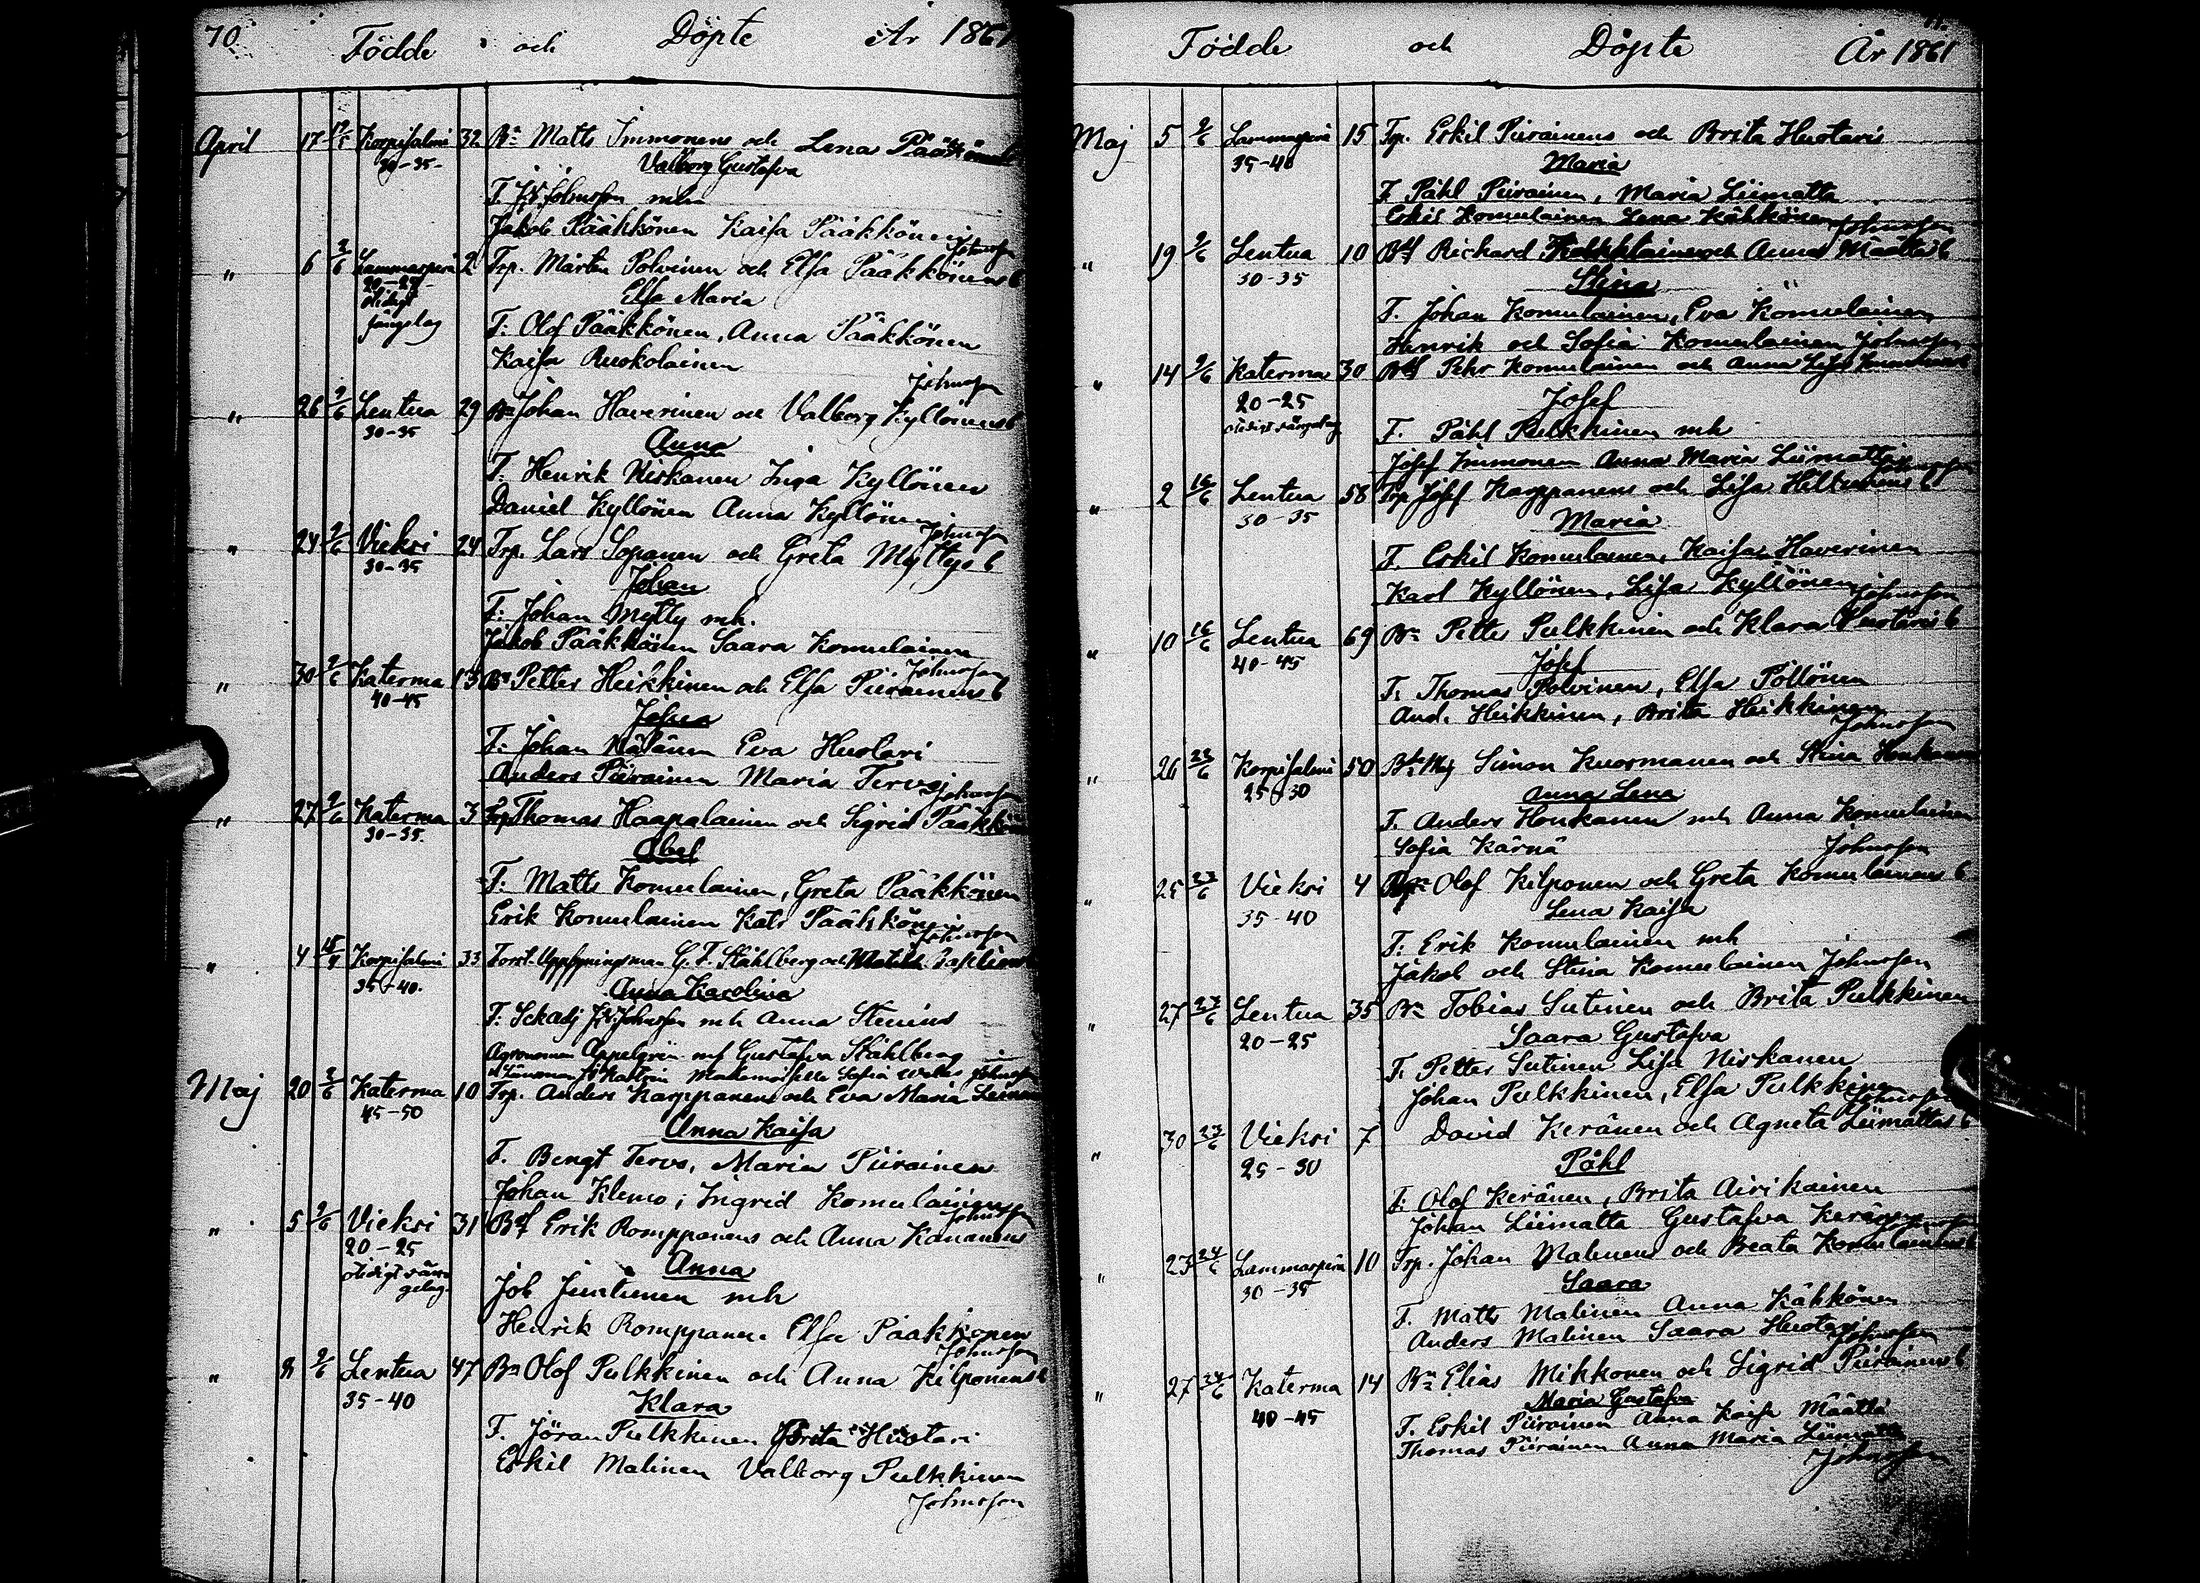 70 Födde och Döpte År 1861
April 17 Korpisalmi 32 Bn Matts Immonens och Lena Pääkkönens
30-35 Valborg Gustafva
F. Johnsson mh
Jakob Pääkkönen Kaisa Pääkkönen
Johnsson
" 6 2/6 Lammasperä 2 Trp. Mårten Polvinen och Elsa Pääkkönens b
Elsa Maria
oläligt
T: Olof Pääkkönen, Anna Pääkkönen
Kaisa Ruokolainen
Johnsson
" 26 2/6 Lentua 29 Bn Johan Haverinen och Valborg Kyllönens b
30-35 Anna
T: Henrik Niskanen Inga Kyllönen
Daniel Kyllönen Anna Kyllönen
Johnsson
" 24 2/6 Vieksi 24 Trp. Lars Sopanen och Greta Myttys b
30-35 Johan
T: Johan Mytty mh.
Jakob Pääkkönen Saara Komulainen
Johnsson
" 30 2/6 Katerma 13 Bn Petter Heikkinen och Elsa Piirainens b
40-45 Josua
T: Johan Eva Huotari
Anders Piirainen Maria Tervo
Johnsson
" 27 2/6 Katerma 3 Trp Thomas Haapalainen och Sigrid Pääkkön
30-35. Abel
T: Matts Komulainen, Greta Pääkkönen
Erik Komulainen Pääkkönen
Johnsson
" 4 Korpisalmi 33 Forst. Uppsyningsman G. F. Ståhlberg och
35-40. Anna Karolina
T: Johnsson mh Anna Stenius
Agronomen Appelgren mf Gustafva Ståhlberg
Sofia Johnsson
Maj 20 2/6 Katerma 10 Trp. Anders Karppanens och Eva Maria
45-50 Anna Kaisa
T. Bengt Tervo, Maria Piirainen
Johan Klemo; Ingrid Komulainen
Johnsson
" 5 2/6 Vieksi 31 Bd Erik Romppanens och Anna Kananens
20-25 Anna
Job Juntunen mh
Henrik Romppanen Elsa Pääkkönen
Johnsson
" 8 2/6 Lentua 47 Bn Olof Pulkkinen och Anna Kilponens b
35-40 Klara
T. Jöran Pulkkinen Brita Huotari
Eskil Malinen Valborg Pulkkinen
Johnsson
Födde och Döpte År 1861
Maj 5 2/6 Lammasperä 15 Trp. Eskil Piirainens och Brita Huotaris
35-40 Maria
T. Påhl Piirainen, Maria Liimatta
Eskil Komulainen Lena Kähkönen
Johnsson
" 19 2/6 Lentua 10 Bd Richard och Anna Määttäs b
30-35 Stina
T. Johan Komulainen, Eva Komulainen
Henrik och Sofia Komulainen Johnsson
" 14 2/6 Katerma 30 Bd Pehr Komulainen och Anna Lisa
20-25 Josef
T. Påhl Pulkkinen mh
Josef Immonen Anna Maria Liimatta
Johnsson
" 2 16/6 Lentua 58 Trp Josef Karppanens och Lisa Hiltunens b
30-35 Maria
T. Eskil Komulainen, Kaisa Haverinen
Karl Kyllönen, Lisa Kyllönen
Johnsson
" 10 16/6 Lentua 69 Bn Petter Pulkkinen och Klara Huotaris b
40-45 Josef
T. Thomas Polvinen, Elsa Pöllönen
And. Heikkinen, Brita Heikkinen
Johnsson
" 26 23/6 Korpisalmi 50 Simon Kuosmanen och Stina Honkanen
25-30 Anna Lena
T. Anders Honkanen mh Anna Komulainen
Sofia Kärnä Johnsson
" 25 23/6 Vieksi 4 Olof Kilponen och Greta Komulainens b
35-40 Lena Kaisa
T: Erik Komulainen mh
Jakob och Stina Komulainen Johnsson
" 27 23/6 Lentua 35 Bn Tobias Sutinen och Brita Pulkkinen
20-25 Saara Gustafva
T. Petter Sutinen Lisa Niskanen
Johan Pulkkinen, Elsa Pulkkinen
Johnsson
" 30 23/6 Vieksi 7 David Keränen och Agneta Liimattas b
25-30 Påhl
T: Olof Keränen, Brita Airikainen
Johan Liimatta Gustafva Keränen
" 23 24/6 Lammasperä 10 Trp. Johan Malinens och Beata Komulainens b
30-35 Saara
T. Matts Malinen Anna Kähkönen
Anders Malinen Saara Huotari
Johnsson
" 27 24/6 Katerma 14 Bn Elias Mikkonen och Sigrid Piirainens b
40-45 Maria Gustafva
T. Eskil Piirainen Anna Kaisa Määttä
Thomas Piirainen Anna Maria Liimatta
Johnsson